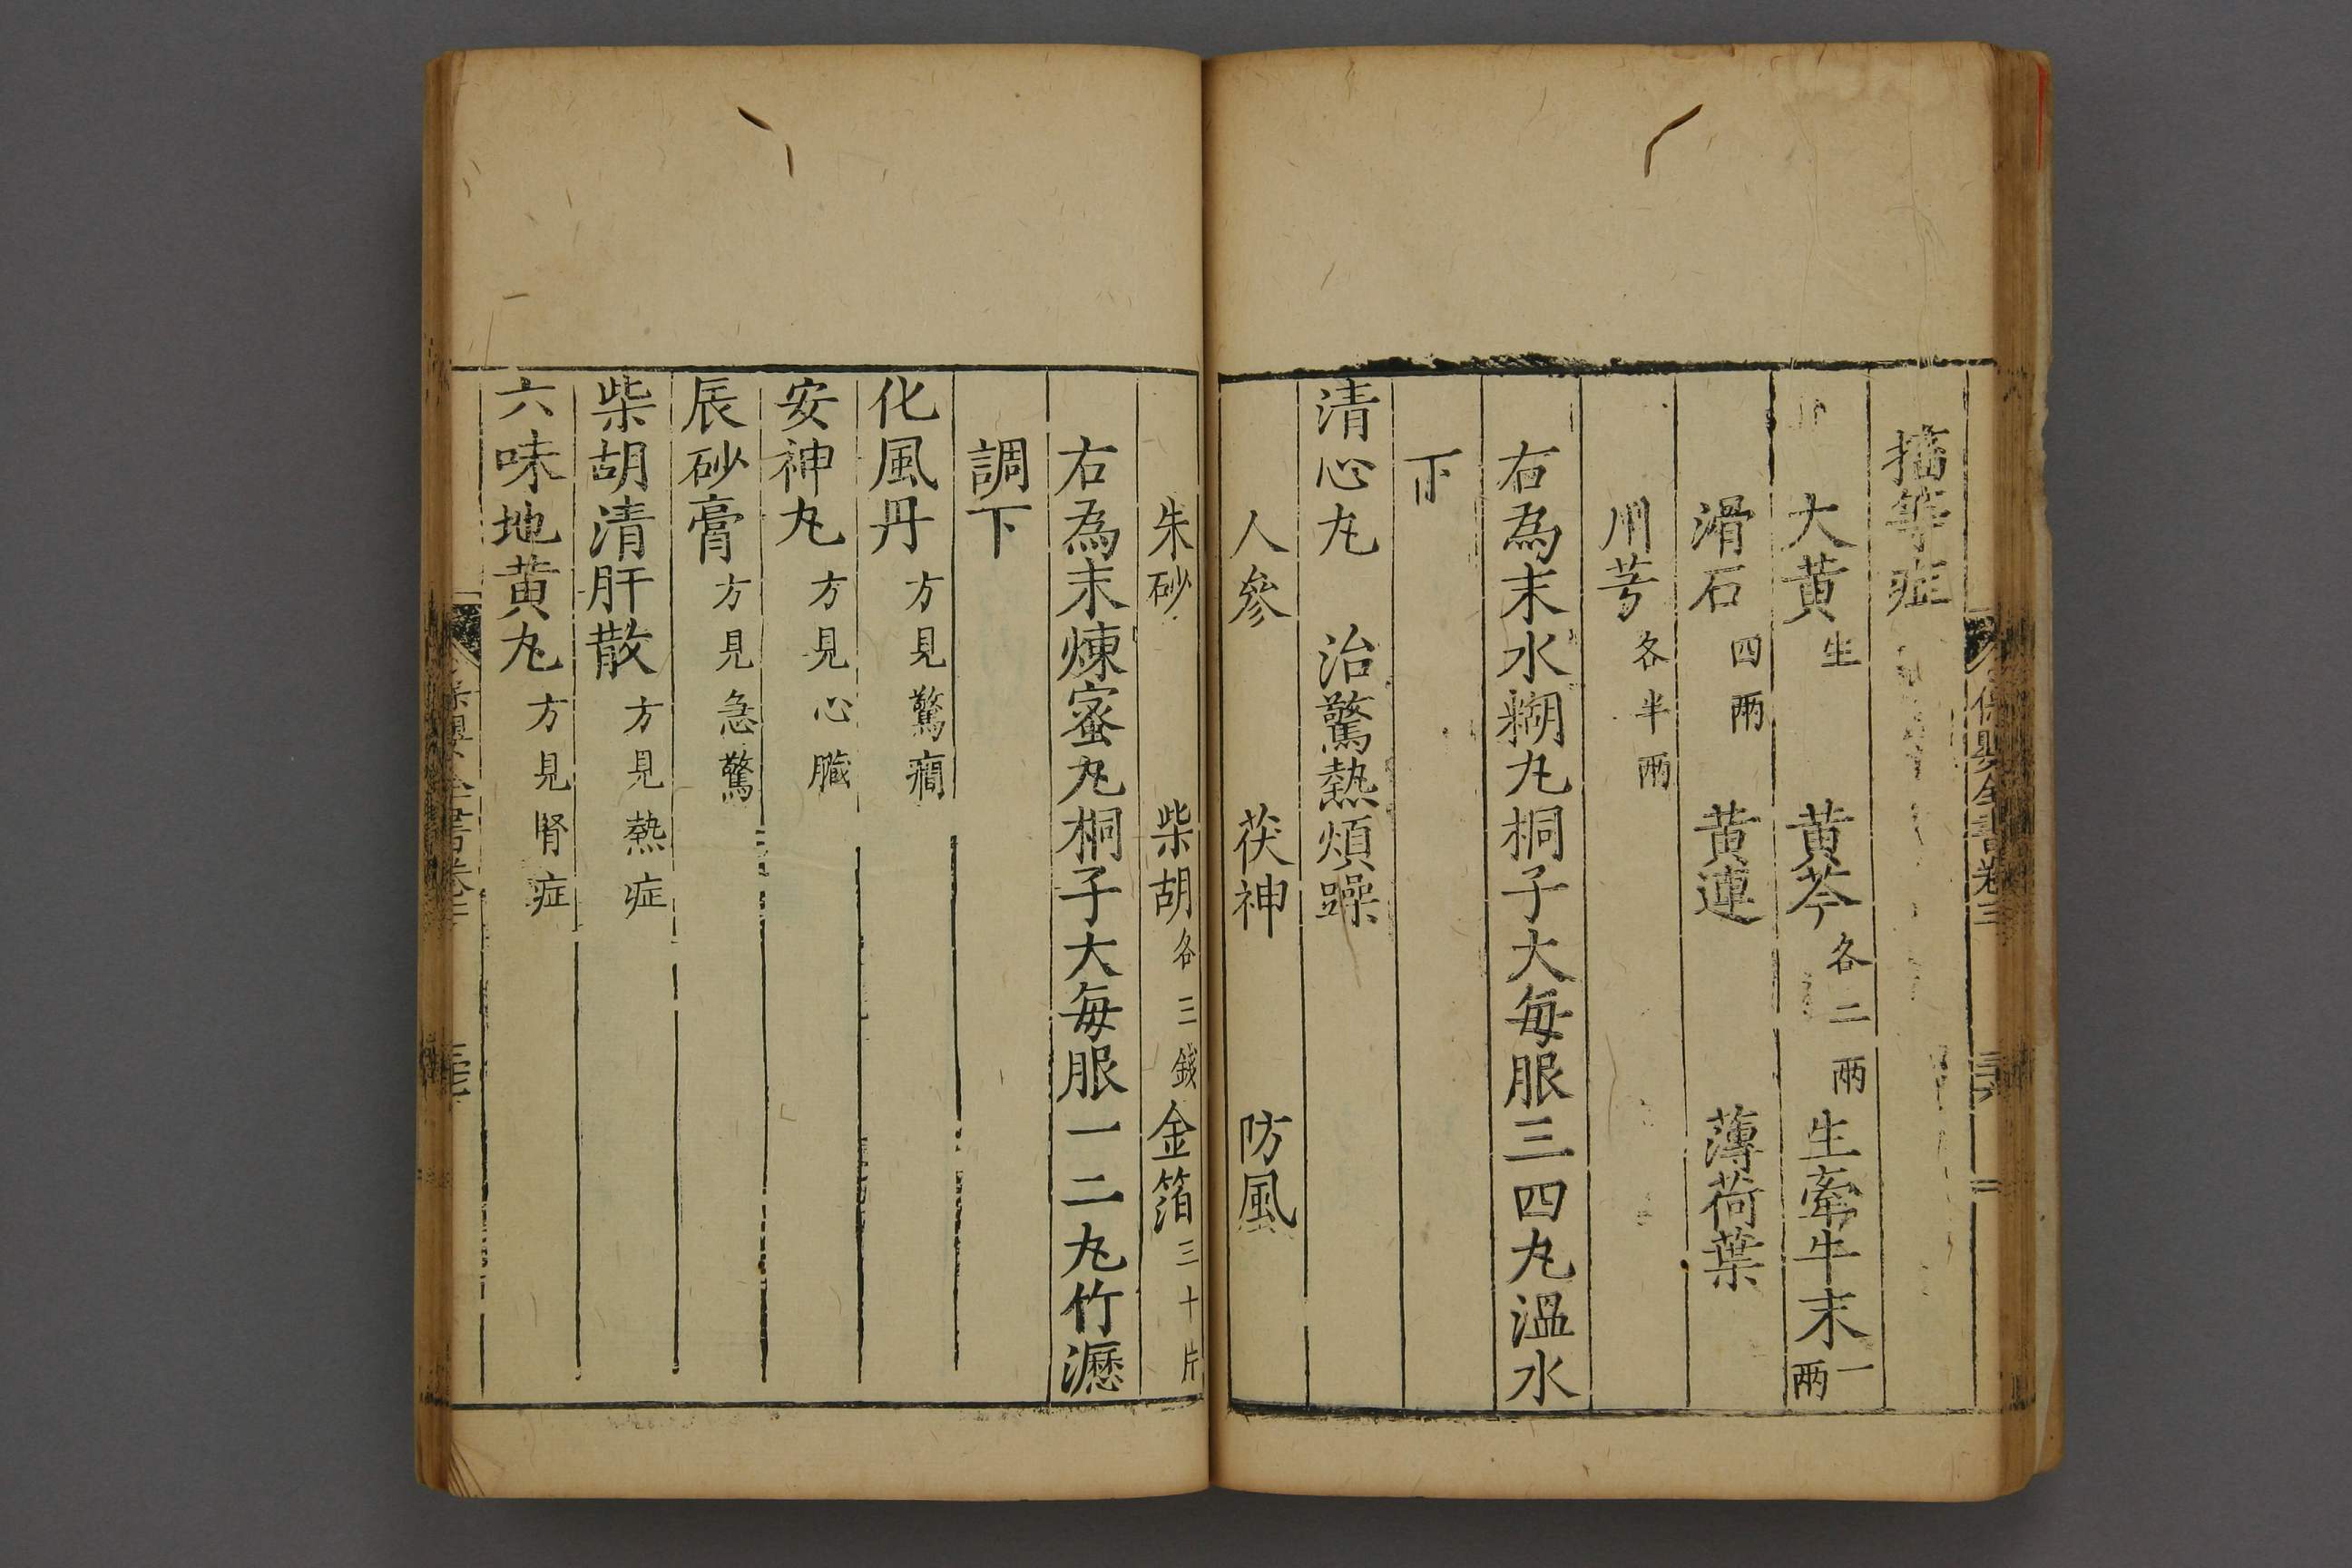 搐等症
大黄生 黄芩各二兩 生牽牛末一兩
滑石四兩 黄連 薄荷葉
川芎各半兩
右為末水糊丸桐子大每服三四丸溫水
下
清心丸 治驚熱煩躁
人參 茯神 防風
保嬰全書卷三
朱砂 柴胡各三錢 金箔三十片
右為末煉蜜丸桐子大每服一二丸竹瀝
調下
化風丹方見驚癎
安神丸方見心臟
辰砂膏方見急驚
柴胡清肝散方見熱症
六味地黄丸方見腎症